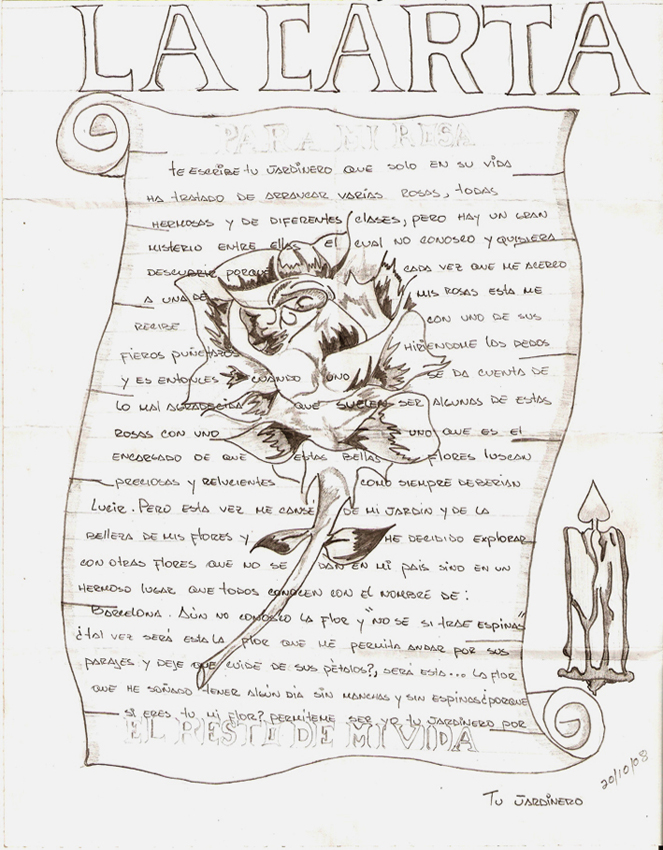 LA CARTA
PARA MI ROSA
te escribe tu jardinero que solo en su vida
ha tratado de arrancar varias rosas, todas
hermosas y de diferentes clases, pero hay un gran
misterio entre ellas el cual no conosco y quisiera
descubrir porque cada vez que me acerco
a una de mis rosas esta me
recibe con uno de sus
fieros puñetazos hiriendome los dedos
y es entonces cuando uno se da cuenta de
lo mal agradecida que suelen ser algunas de estas
rosas con uno uno que es el
encargado de que estas bellas flores luscan
preciosas y relucientes como siempre deberian
lucir. Pero esta vez me canse de mi jardin y de la
belleza de mis flores y he decidido explorar
con otras flores que no se dan en mi pais sino en un
hermoso lugar que todos conocen con el nombre de:
Barcelona. Aún no conosco la flor y "no se si trae espinas"
¿tal vez será esta la flor que me permita andar por sus
parajes y deje que cuide de sus pétalos?, será esta... la flor
que he soñado tener algún dia sin manchas y sin espinas ¿porque
si eres tu mi flor? permiteme ser yo tu jardinero por
EL RESTO DE MI VIDA
20/10/08
Tu jardinero